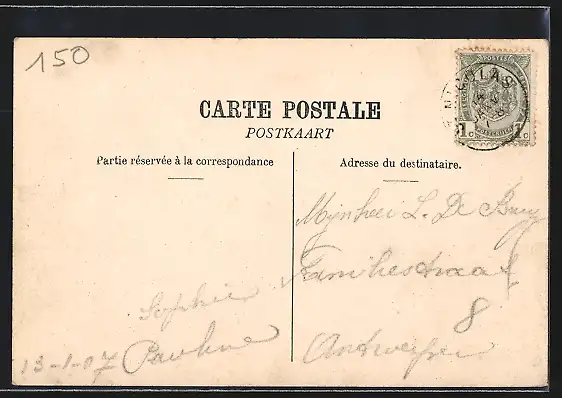 150
CARTE POSTALE
POSTKAART
Partie réservée à la correspondance
Adresse du destinataire.
NICOLAS
1c 1c
Mijnheer L. De Bruy
Familiestraat
8
Antwerpen
Sophie
13-1-07 Pauline